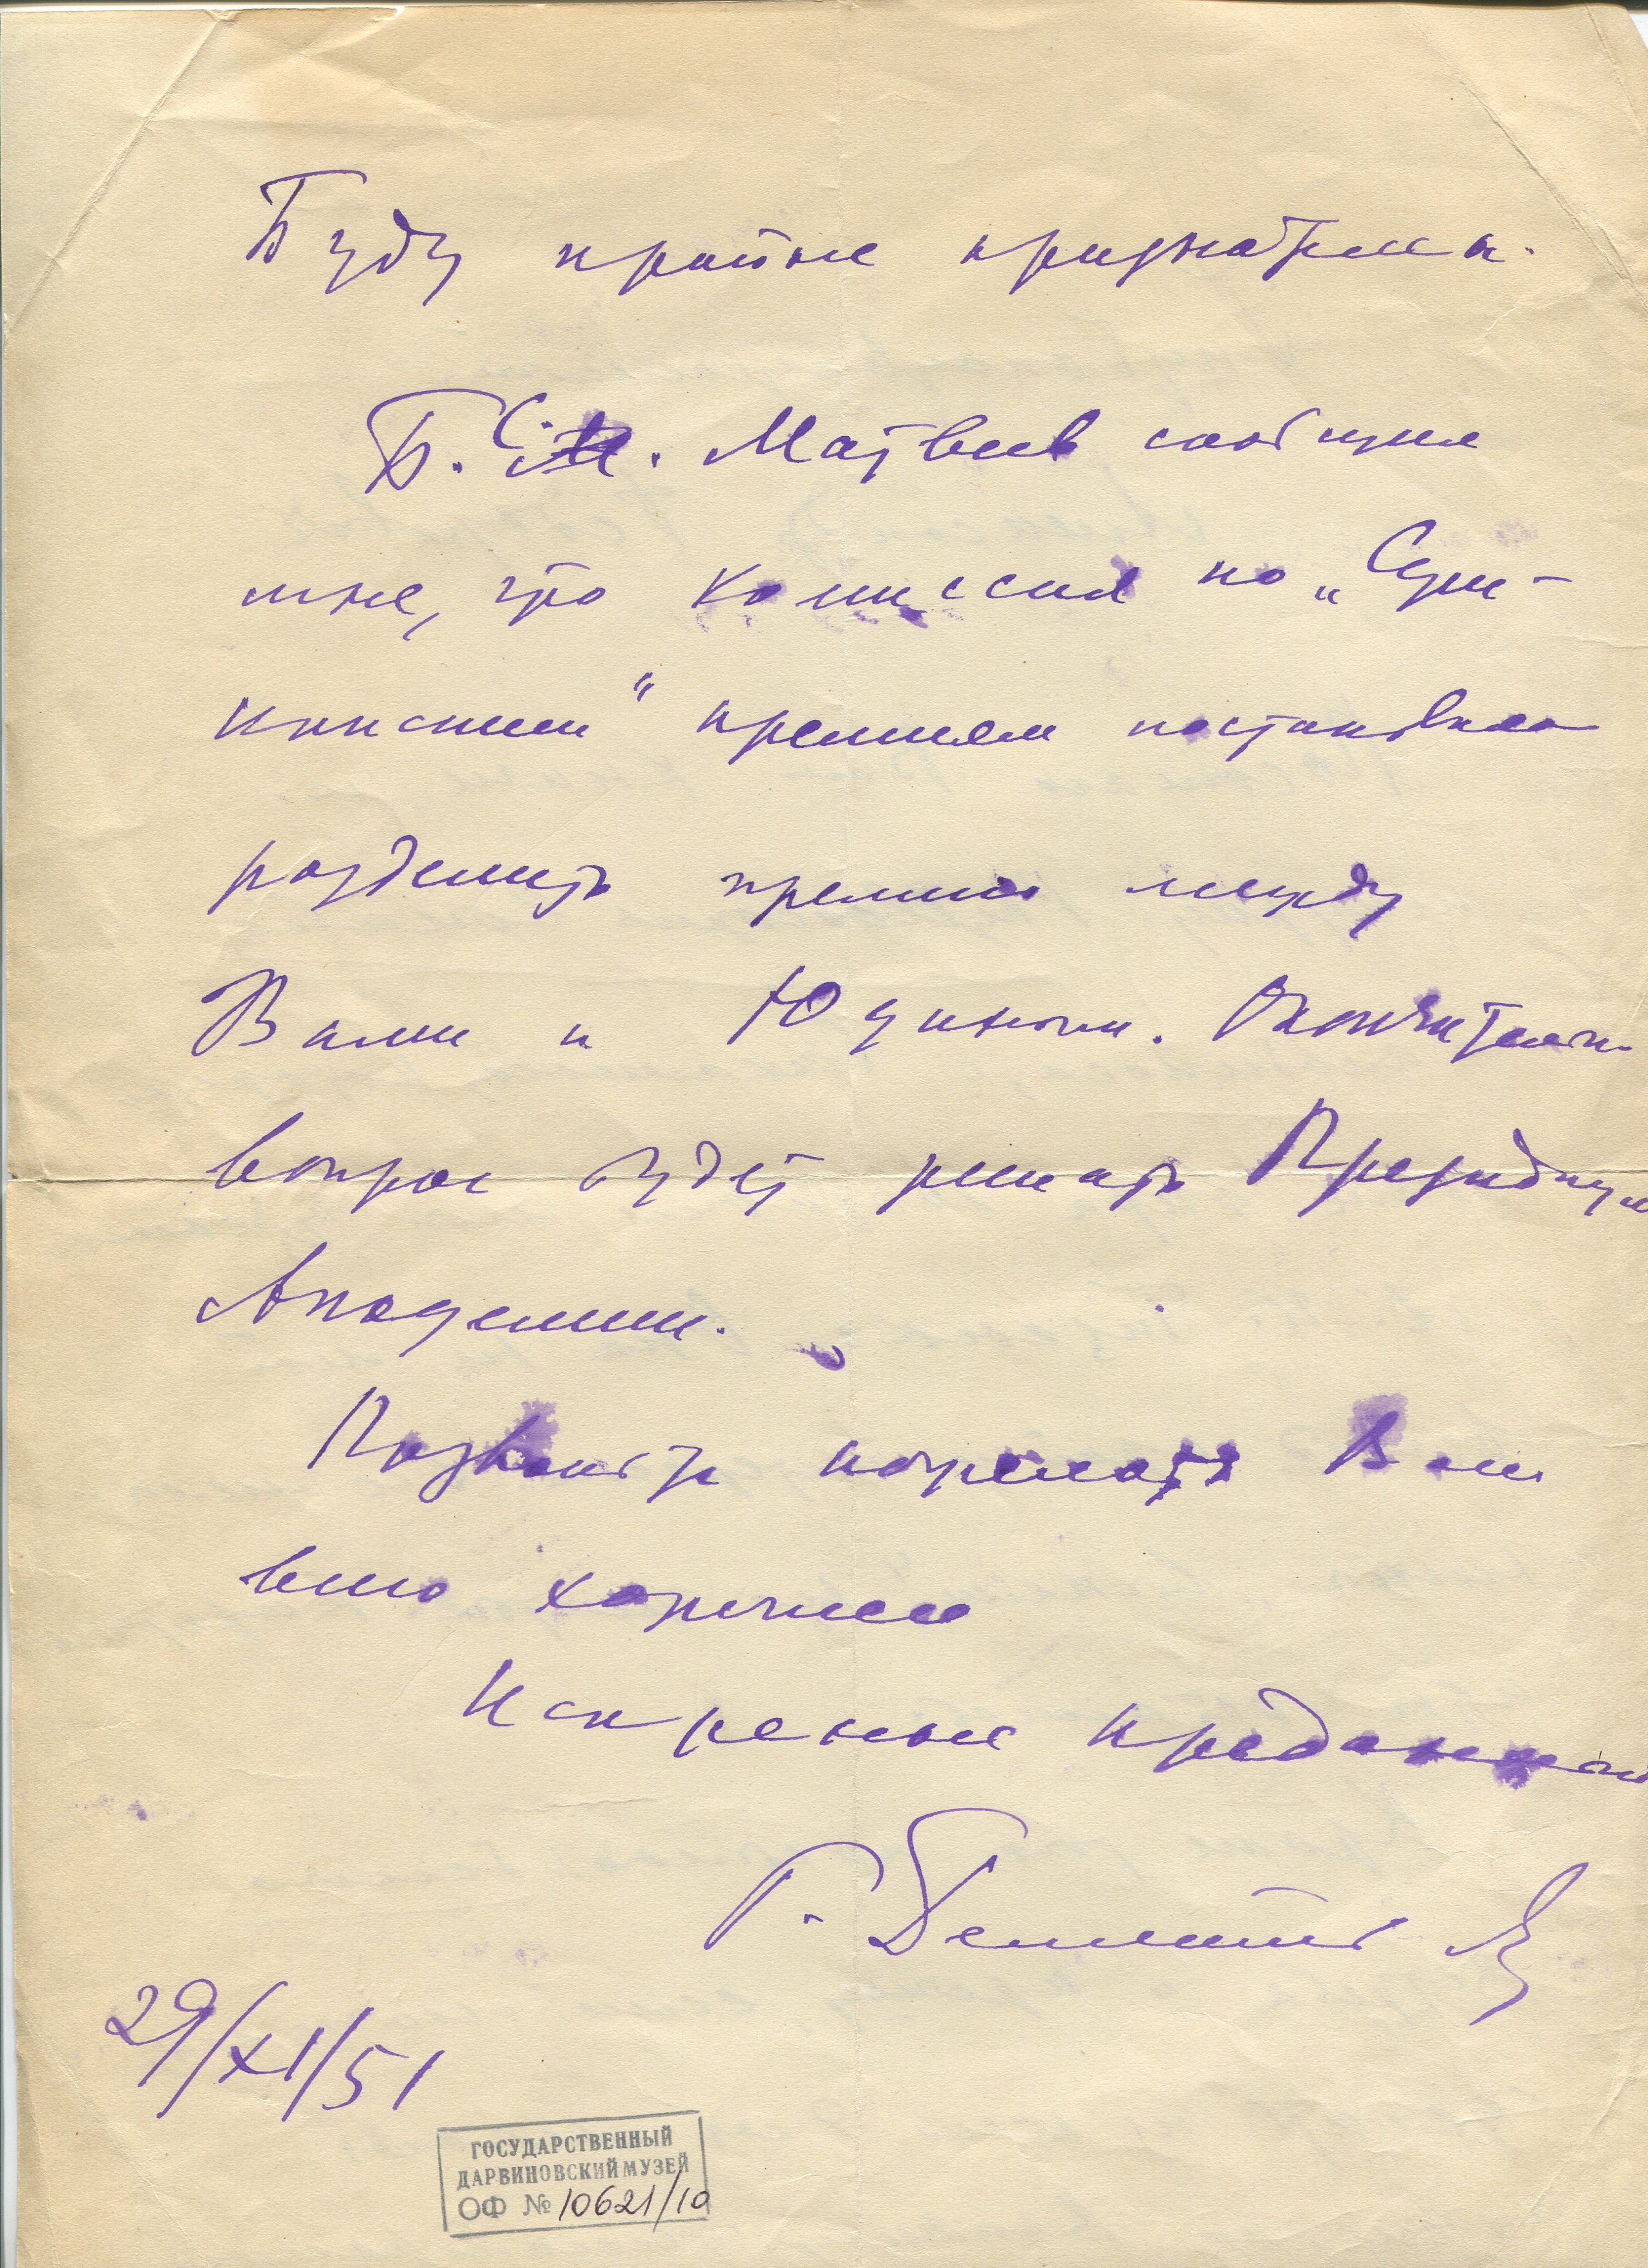 Буду крайне признателен.
Б. С. М. Матвеев сообщил
мне, что комиссия по „Сушкинским
" премиям постановила
разделить премию между
Вами и Юдиным. Окончательн.
вопрос будет решать Президиум
Академии.
Позвольте пожелать Вам
всего хорошего
Искренне преданный
Г. Дементьев
29/XI/51
ГОСУДАРСТВЕННЫЙ
ДАРВИНОВСКИЙ МУЗЕЙ
ОФ № 10621/10